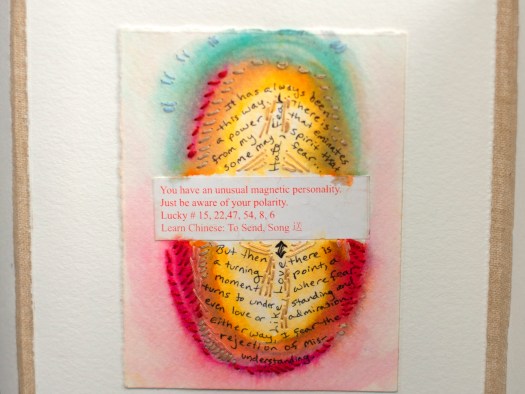 It has always been
this way. There is
a power that
from my spirit
some may fear.
Hate Fear
You have an unusual magnetic personality.
Just be aware of your polarity.
Lucky # 15, 22,47, 54, 8, 6
Learn Chinese: To Send, Song 送
Like Love
But then there is
a turning point, a
moment where fear
turns to under standing and
even love or admiration
either way, I fear the
rejection of mis-
understanding.